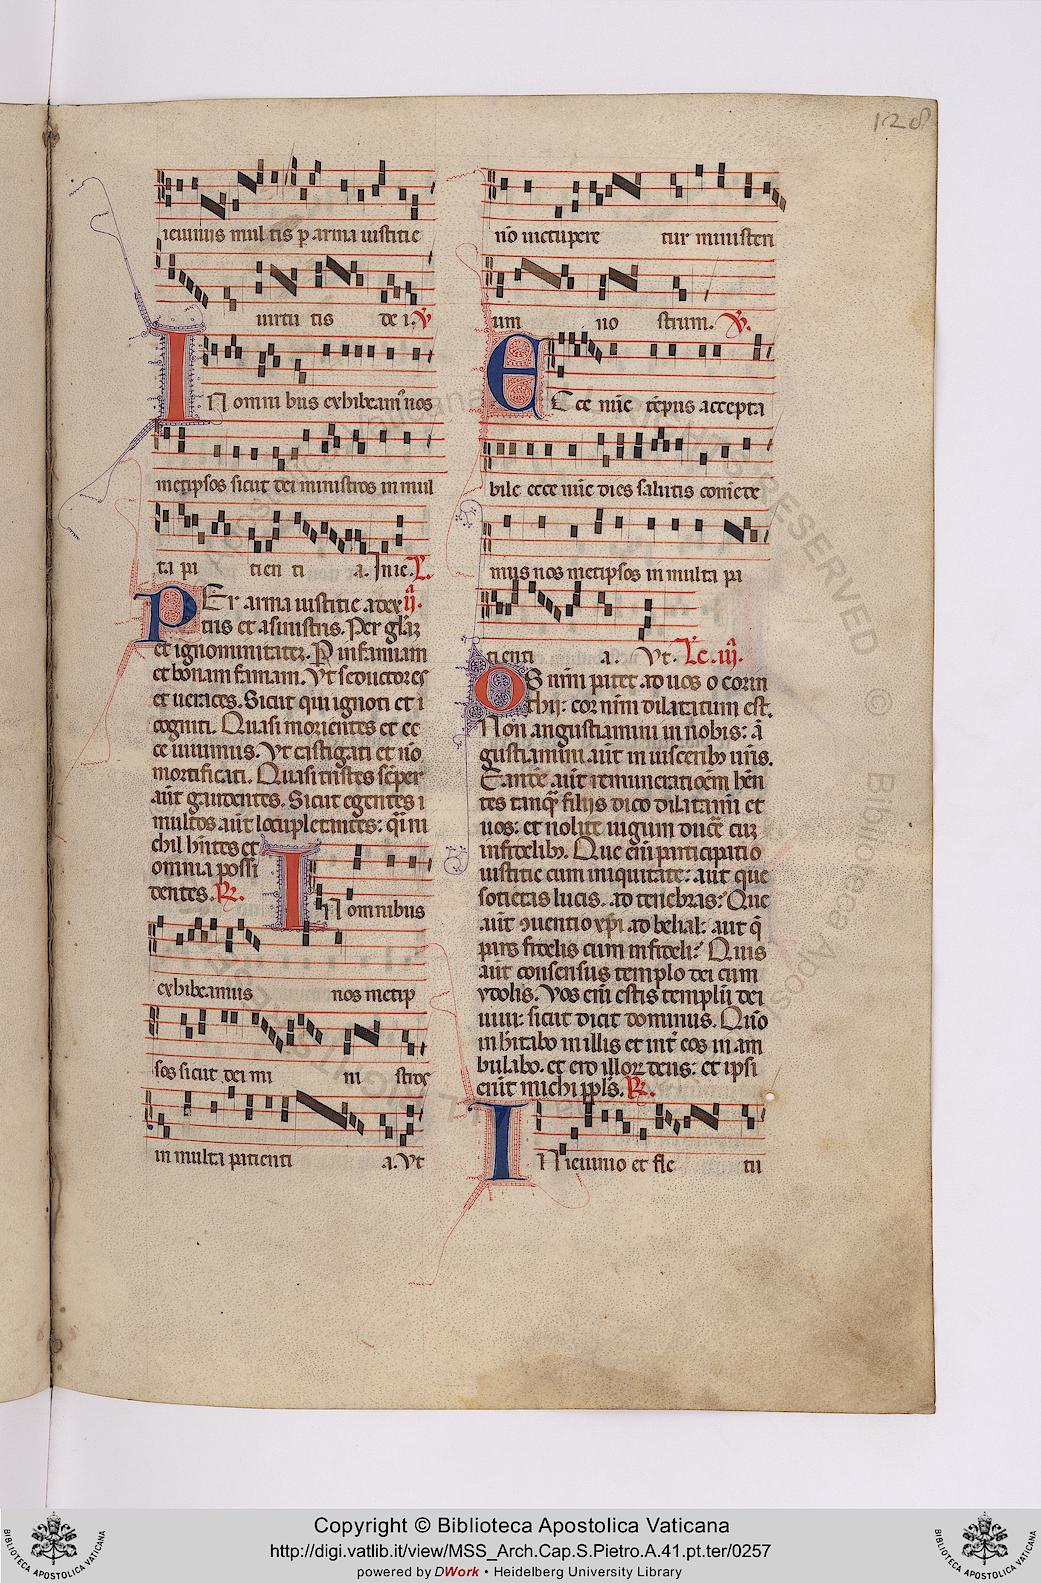 128
ieiuniis mul tis p arma iustitie
uirtu tis de i. V
IN omni bus exhibeam' nos
metipsos sicut dei ministros in mul
ta pi tien ti a. In ie. L.
PEr arma iustitie a dex ij.
tris et a sinistris. Per gl'az
et ignominitatez. P infamiam
et bonam famam. Vt seductores
et ueraces. Sicut qui ignoti et i
cogniti. Quasi morientes et ec
ce uiuimus. Vt castigati et no
mortificati. Quasi tristes sēper
aūt gaudentes. Sicut egentes
multos aūt locupletantes:
chil h'ntes et
omnia possi
dentes. R.
IN omnibus
exhibeamus nos metip
sos sicut dei mi ni stros
in multa patienti a. Vt
nō uictupere tur ministeri
um no strum. V.
ECce nūc tēpus accepta
bile ecce nūc dies salutis comēde
mus nos metipsos in multa pa
tienti a. Vt. Lc. iij.
OS nrm patet ad uos o corin
thij: cor nrm dilatatum est.
Non angustiamini in nobis: ā
gustiamini aūt in uisceribz uris.
Eandē aūt remunerationem hēn
tes tanq̄ filijs dico dilatami et
uos: et nolite iugum ducē cuz
infidelibz. Que eni participatio
iustitie cum iniquitate: aut que
societas lucis. ad tenebras: Que
aūt ɔuentio xpi ad belial: aut q̄
pars fidelis cum infideli: Quis
aūt consensus templo dei cum
ydolis. Vos eni estis templū dei
uiui: sicut dicit dominus. Qm̄o
inh'itabo in illis et int' eos in am
bulabo. et ero illoꝝ deus: et ipsi
erūt michi ppl's. R.
IN ieiunio et fle tu
Copyright © Biblioteca Apostolica Vaticana
http://digi.vatlib.it/view/MSS_Arch.Cap.S.Pietro.A.41.pt.ter/0257
powered by DWork • Heidelberg University Library